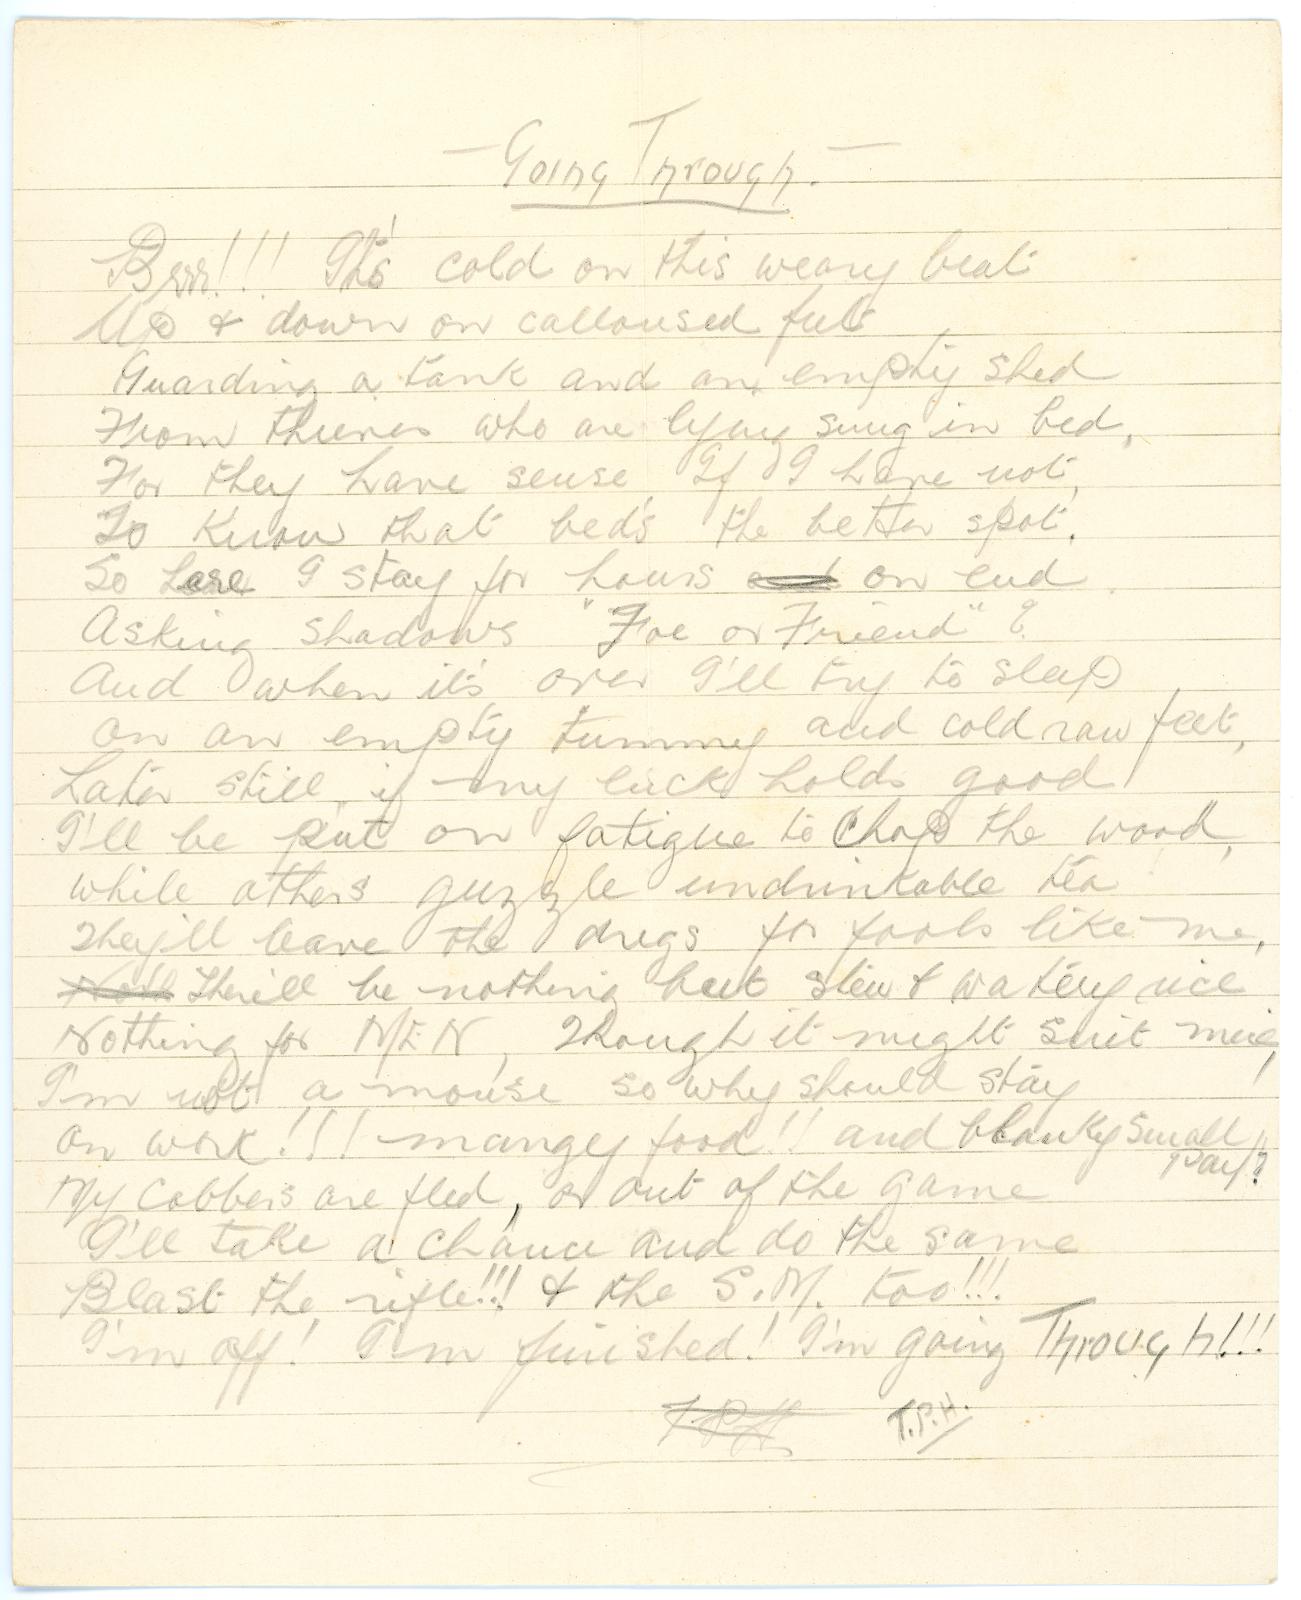 - Going Through. -
Brrr!!! It's cold on this weary beat
Up & down on calloused feet
Guarding a tank and an empty shed
From thieves who are lying snug in bed,
For they have sense, If I have not,
To know that bed's the better spot.
So here I stay for hours on end
Asking shadows "Foe or Friend"?
And when it's over I'll try to sleep
on an empty tummy and cold raw feet,
Later still, if my luck holds good
I'll be put on fatigue to chop the wood,
while others guzzle undrinkable tea
They'll leave the dregs for fools like me,
There'll be nothing but stew & watery rice
Nothing for MEN, Though it might suit mice,
I'm not a mouse so why should stay
on work!!! mangey food!! and blanky small pay!!?
My cobbers are fled, or out of the game
I'll take a chance and do the same
Blast the rifle!!! & the S.M. too!!!
I'm off! I'm finished! I'm going Through!!!
T.P.H. T.P.H.